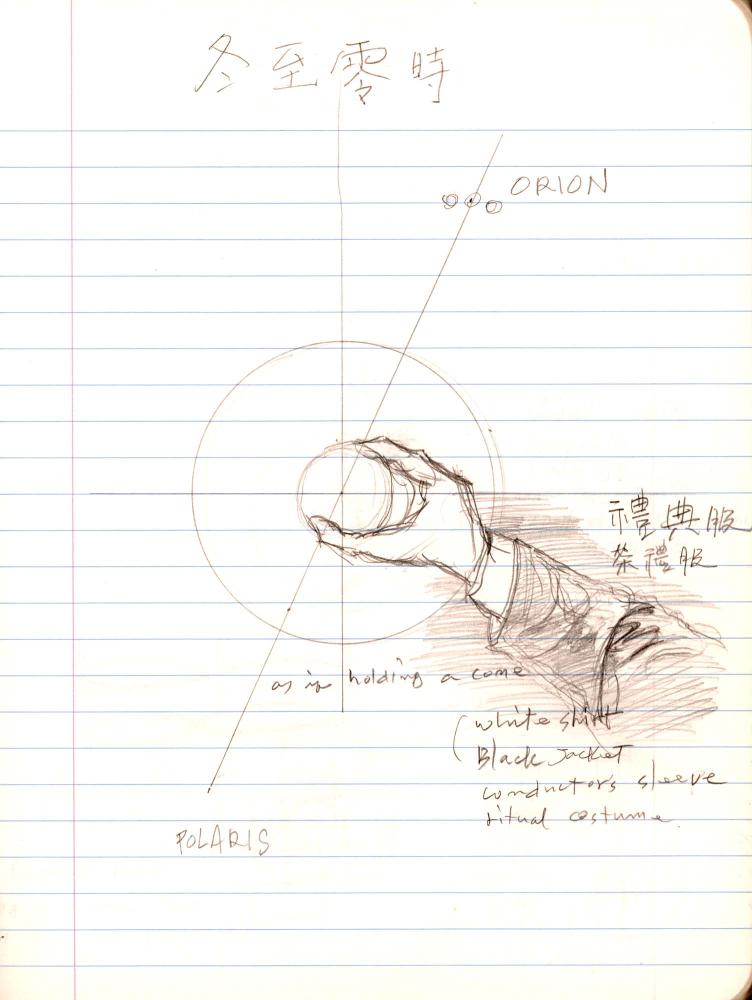 冬至零時
ORION
禮典服
祭禮服
as if holding a cone
(white shirt
Black Jacket
conductor's sleeve
ritual costume
POLARIS